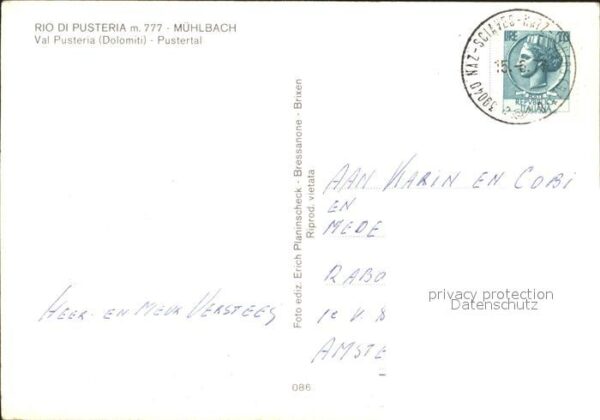 RIO DI PUSTERIA m. 777 - MÜHLBACH
Val Pusteria (Dolomiti) - Pustertal
39040 NAZ-SCIAVES
LIRE
POSTE
REPUBBLICA
ITALIANA
Foto ediz. Erich Planinscheck - Bressanone - Brixen
Riprod. vietata
AAN KARIN EN COBI
EN
MEDE
RABO
AMSTE
HEER EN MEVR VERSTEEG
privacy protection
Datenschutz
086